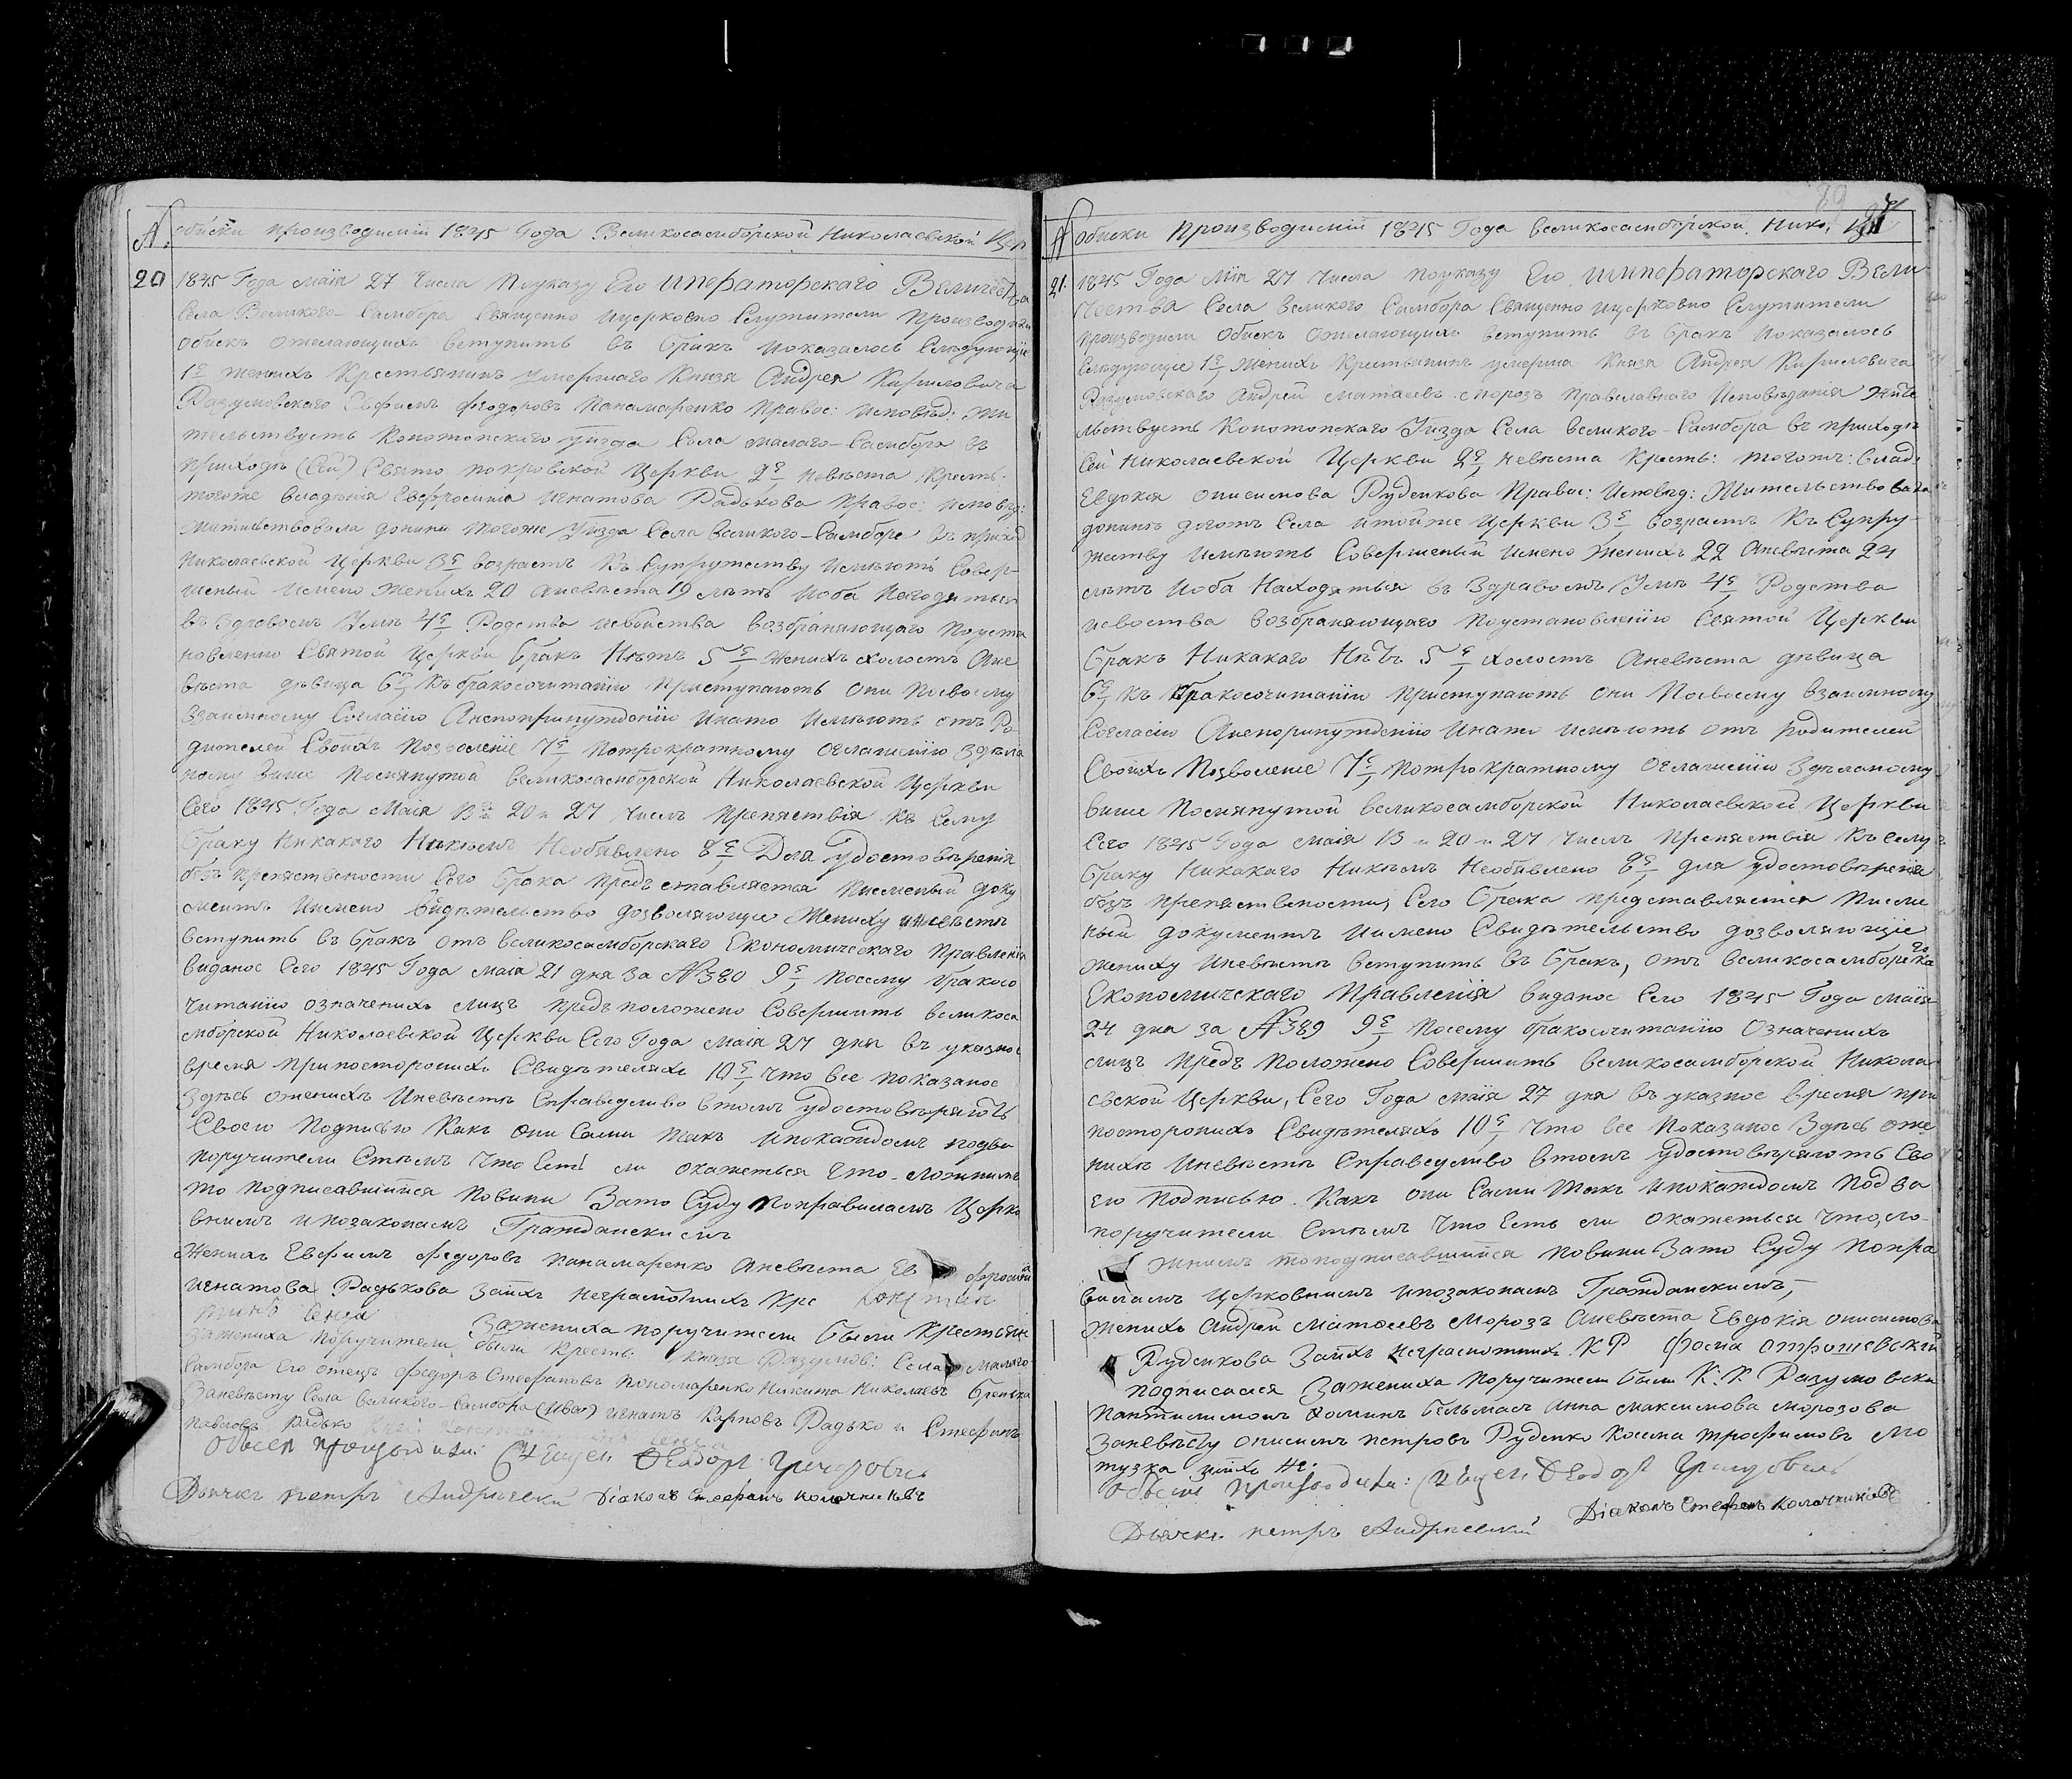 № обиски производимiи 1845 Года Великосамборской Николаевской Цер
20 1845 Года маiя 27 Числа Поуказу Его императорскаго Величества
Села Великого-Самбора Священно ицерковно Служители Производили
обискъ ожелающихъ вступить въ бракъ ипоказалось Слѣдующiе
1е женихъ Крестьянинъ умершаго Князя Андрея Кириловича
Разумовскаго Евфимъ феодоровъ Панамаренко Правос: исповѣд: жи
тельствуетъ Конотопскаго уѣзда Села малаго-Самбора въ
приходѣ (Сей) Свято покровской Церкви 2е невѣста Кресть:
тогоже владѣнiя Евфросинiа игнатова Радькова Правос: исповѣд:
жительствовала донинѣ тогоже Уѣзда Села великого-Самборе въ приход
Николаевской Церкви 3е возрастъ Къ Супружеству имѣютъ Совер-
шеный имено женихъ 20 аневѣста 19 лѣтъ иоба Находяться
въ здравомъ Умѣ 4е Родства исвойства возбраняющаго Поуста
новленiю Святой Церкви бракъ Нѣтъ 5е женихъ холостъ Ане
вѣста дѣвица 6е къ бракосочитанiю приступаютъ они Посвоему
взаимному Согласiю Анепопринужденiю инато имѣютъ отъ Ро-
дителей Своихъ позволенiе 7е потрократному оглашенiю здѣла
ному више помянутой великосамборской Николаевской Церкви
Сего 1845 Года Маiя 13 и 20 и 27 Числъ препятствiя къ Сему
браку Никакого Никѣмъ Необявлено 8е Для Удостовѣренiя
безъ препятственности Сего брака представляется Писменый доку
ментъ имено Свидѣтельство дозволяющее Жениху иневѣстѣ
вступить въ бракъ отъ великосамборскаго Економическаго Правленiя
виданое Сего 1845 Года маiя 21 дня за № 380 9е Посему бракосо
читанiю означенихъ лицъ предъположено Совершить великоса
мборской Николаевской Церкви Сего Года маiя 27 дня въ указное
время припосторонихъ Свидѣтеляхъ 10е что все показаное
здѣсь оженихѣ иневѣстѣ Справедливо втомъ удостовѣряютъ
Своею Подписью Какъ они Сами такъ ипокаждомъ подва
поручители Стѣмъ что Есть ли окажеться что ложнимъ
то подписавшiися повини Зато Суду Поправиламъ Церко
внимъ ипозаконамъ Гражданскимъ
Женихъ Евфимъ федоровъ панамаренко Аневѣста Ев фросинiя
игнатова Радькова Заихъ неграмотнихъ Кре
Зажениха поручители были Крестьян
Зажениха поручители были кресть: Князя Разумов: Села малого
Самбора Его отецъ федоръ Стефановъ пономаренко Никита Николаевъ
Заневѣсту Села великого-Самбора (ива) игнатъ Карповъ Радько и Стефанъ
павловъ Радько
Обыскъ производили Сщенъ Феодоръ
Дьячкъ петръ Андрiевскiй Дiаконъ Стефанъ
№ обиски Производимiи 1845 Года великосамборской. Нико,
21. 1845 Года Мiя 27 Числа поуказу Его императорскаго Вели
чества Села великого Самбора Священно ицерковно Служители
производили обискъ ожелающихъ вступить въ бракъ ипоказалось
Слѣдующiе 1е женихъ Крестьянинъ умерша Князя Андрея Кириловича
Разумовскаго Андрей матвѣевъ морозъ православнаго Исповѣданiя жите
льствуетъ Конотопскаго Уѣзда Села великого-Самбора въ приходѣ
Сей Николаевской Церкви 2е невѣста Кресть: тогожъ: влад:
Евдокiя онисимова Руденкова Правос: исповѣд: Жительствовала
донинѣ догожъ Села итойже Церкви 3е возрастъ Къ Супру-
жеству имѣютъ Совершеный имено женихъ 22 аневѣста 21
лѣтъ иоба Находяться въ здравомъ Умѣ 4е Родства
исвоства возбраняющаго поустановленiю Святой Церкви
бракъ Никакого Нѣтъ 5е холостъ аневѣста дѣвица
6е къ бракосочитанiю приступаютъ они Посвоему взаимному
Согласiю Анепопринужденiю инато имѣютъ отъ родителей
Своихъ позволенiе 7е потрократному оглашенiю здѣланому
више помянутой великосамборской Николаевской Церкви
Сего 1845 Года маiя 13 и 20 и 27 Числъ препятствiя къ сему
браку Никакого Никѣмъ Необявлено 8е для удостовѣренiя
безъ препятственности Сего брака представляется Писме
ный документъ имено Свидѣтельство дозволяющее
жениху иневѣстѣ вступить въ бракъ, отъ великосамборска го
Економическаго Правленiя виданое Сего 1845 Года маiя
24 дня за № 389 9е Посему бракосочитанiю Означенихъ
лицъ предъ положено Совершить великосамборской Никола-
евской Церкви, Сего Года маiя 27 дня въ указное время при
посторонихъ Свидѣтеляхъ 10е что все показаное здѣсь оже
нихѣ иневѣстѣ Справедливо втомъ удостовѣряютъ Сво
ею Подписью. Какъ они Сами такъ ипокаждомъ подва
поручители Стѣмъ что Есть ли окажеться что, ло-
жнимъ топодписавшiися повини Зато Суду попра
виламъ Церковнимъ ипозаконамъ Гражданскимъ,
женихъ Андрей матвѣевъ морозъ аневѣста Евдокiя онисимова
Руденкова Заихъ неграмотнихъ. К Р фома
подписался Зажениха поручители были К. Р Разумовски
пантилимонъ фоминъ Анна максимова морозова
Заневѣсту онисимъ петровъ Руденко Косма трофимовъ мо
тузка
Обыскъ производили: Сщенъ Феодоръ
Дiаконъ Стефанъ
Дьячкъ петръ Андрiевскiй